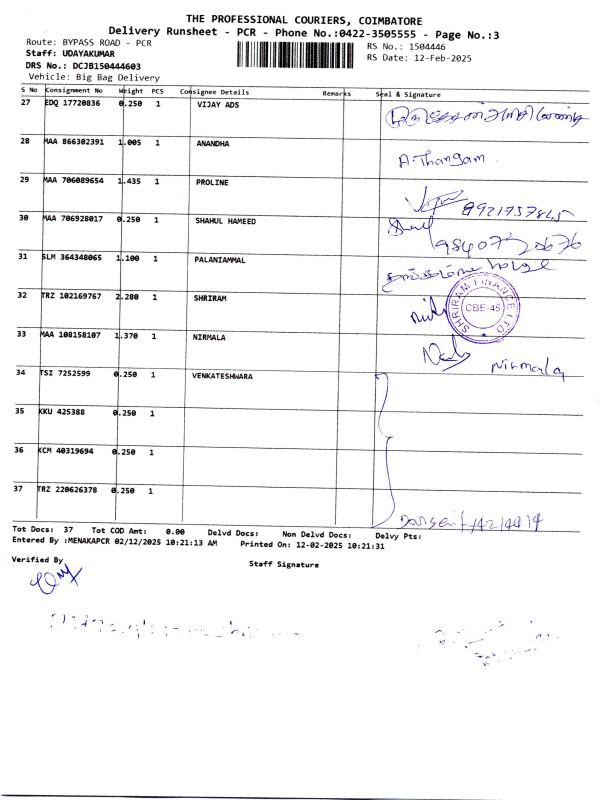 THE PROFESSIONAL COURIERS, COIMBATORE
Delivery Runsheet - PCR - Phone No.:0422-3505555 - Page No.:3
Route: BYPASS ROAD - PCR
RS No.: 1504446
Staff: UDAYAKUMAR
RS Date: 12-Feb-2025
DRS No.: DCJB150444603
Vehicle: Big Bag Delivery
S No Consignment No Weight PCS Consignee Details Remarks Seal & Signature
27 EDQ 17720836 0.250 1 VIJAY ADS
28 MAA 866302391 1.005 1 ANANDHA
A. Thangam
29 MAA 706089654 1.435 1 PROLINE
8921757845
30 MAA 706928017 0.250 1 SHAHUL HAMEED
9840720676
31 SLM 364348065 1.100 1 PALANIAMMAL
32 TRZ 102169767 2.280 1 SHRIRAM
SHRIRAM FINANCE LTD
CBE-45
33 MAA 108158107 1.370 1 NIRMALA
Nirmala
34 TSI 7252599 0.250 1 VENKATESHWARA
35 KKU 425388 0.250 1
36 KCM 40319694 0.250 1
37 TRZ 220626378 0.250 1
Tot Docs: 37 Tot COD Amt: 0.00 Delvd Docs: Non Delvd Docs: Delvy Pts:
Entered By :MENAKAPCR 02/12/2025 10:21:13 AM Printed On: 12-02-2025 10:21:31
Verified By
Staff Signature